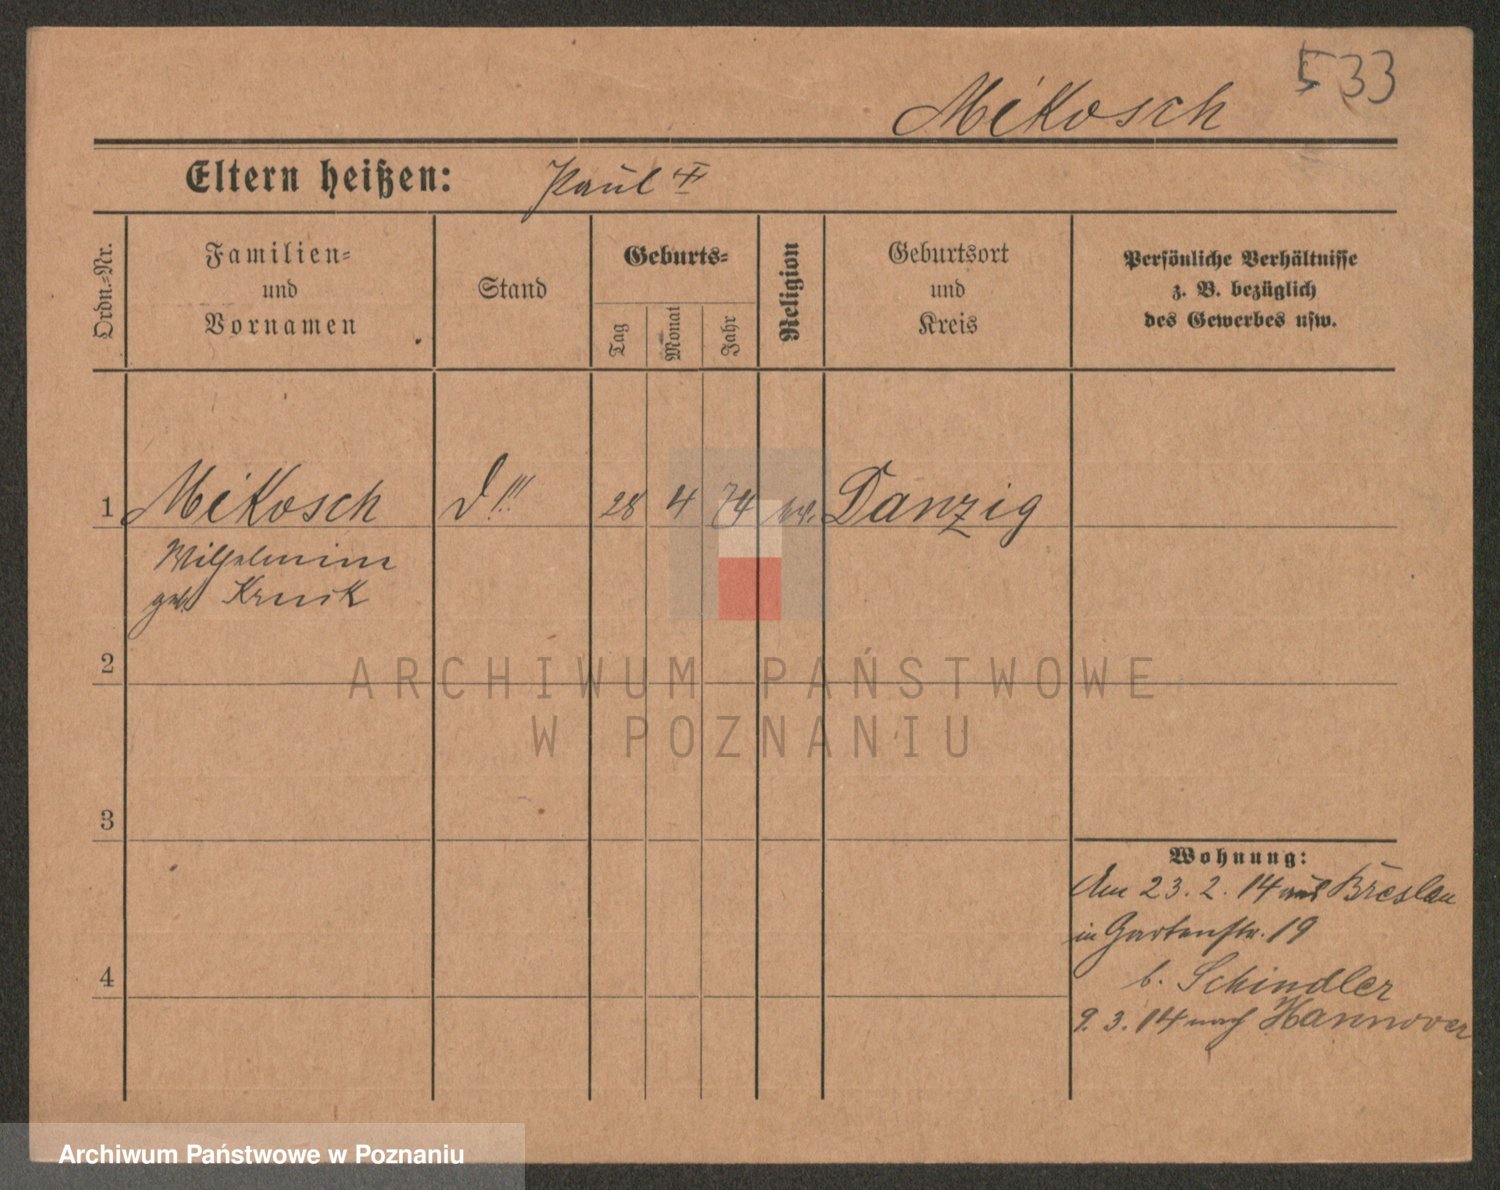 533
Mikosch
Eltern heißen: Paul
Ordn.-Nr.
Familien-
und
Vornamen
Stand
Geburts-
Tag
Monat
Jahr
Religion
Geburtsort
und
Kreis
Persönliche Verhältnisse
z. B. bezüglich
des Gewerbes usw.
1 Mikosch 28 4 74 ev. Danzig
Wilhelmine
geb. Krusik
2
ARCHIWUM PAŃSTWOWE
W POZNANIU
3
Wohnung:
Am 23. 2. 14 aus Breslau
in Gartenstr. 19
b. Schindler
4
9. 3. 14 nach Hannover
Archiwum Państwowe w Poznaniu